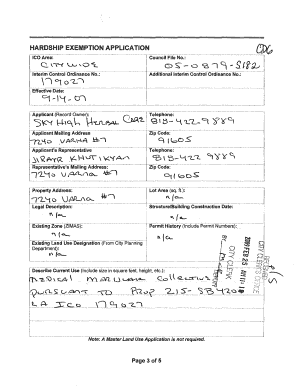 CD6
HARDSHIP EXEMPTION APPLICATION
ICO Area: Council File No.:
CITYWIDE 05-0879-S182
Interim Control Ordinance No.: Additional Interim Control Ordinance No.:
179027
Effective Date:
9-14-07
Applicant (Record Owner): Telephone:
SKY High Herbal Care 818-422-9889
Applicant Mailing Address Zip Code:
7240 VARNA #7 91605
Applicant's Representative Telephone:
JIRAYR KHUTIKYAN 818-422 9889
Representative's Mailing Address Zip Code:
7240 VARNA #7 91605
Property Address: Lot Area (sq. ft.):
7240 VARNA #7 n/a
Legal Description: Structure/Building Construction Date:
n/a n/a
Existing Zone (ZIMAS): Permit History (Include Permit Numbers):
n/a n/a
Existing Land Use Designation (From City Planning
Department):
n/a
CITY CLERK
Describe Current Use (Include size in square feet, height, etc.):
MEDICAL MARIJUANA Collective
PURSUANT TO PROP 215- SB420
LA ICO 179027
Note: A Master Land Use Application is not required.
Page 3 of 5